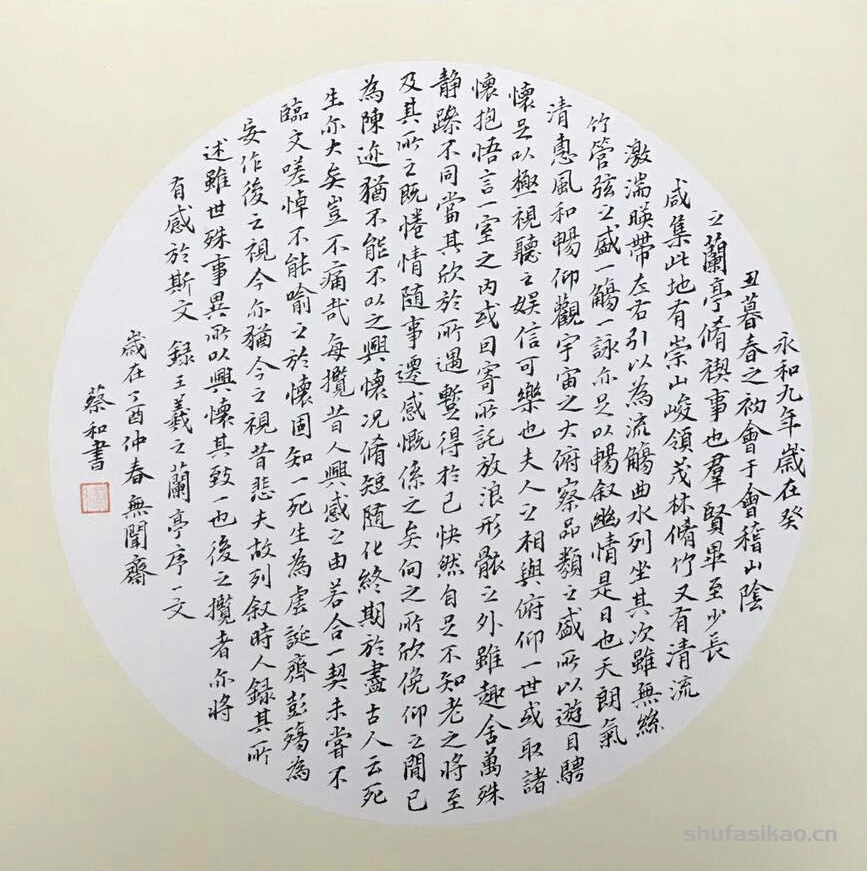 永和九年歲在癸
丑暮春之初會于會稽山陰
之蘭亭脩禊事也羣賢畢至少長
咸集此地有崇山峻領茂林脩竹又有清流
激湍暎帶左右引以為流觴曲水列坐其次雖無絲
竹管弦之盛一觴一詠亦足以暢叙幽情是日也天朗氣
清惠風和暢仰觀宇宙之大俯察品類之盛所以遊目騁
懷足以極視聽之娛信可樂也夫人之相與俯仰一世或取諸
懷抱悟言一室之內或因寄所託放浪形骸之外雖趣舍萬殊
静躁不同當其欣於所遇暫得於己快然自足不知老之將至
及其所之既惓情隨事遷感慨係之矣向之所欣俛仰之間已
為陳迹猶不能不以之興懷況脩短随化終期於盡古人云死
生亦大矣豈不痛哉每攬昔人興感之由若合一契未嘗不
臨文嗟悼不能喻之於懷固知一死生為虛誕齊彭殤為
妄作後之視今亦猶今之視昔悲夫故列叙時人録其所
述雖世殊事異所以興懷其致一也後之攬者亦將
有感於斯文 録王羲之蘭亭序一文
歲在丁酉仲春無聞齋
蔡和書
shufasikao.cn